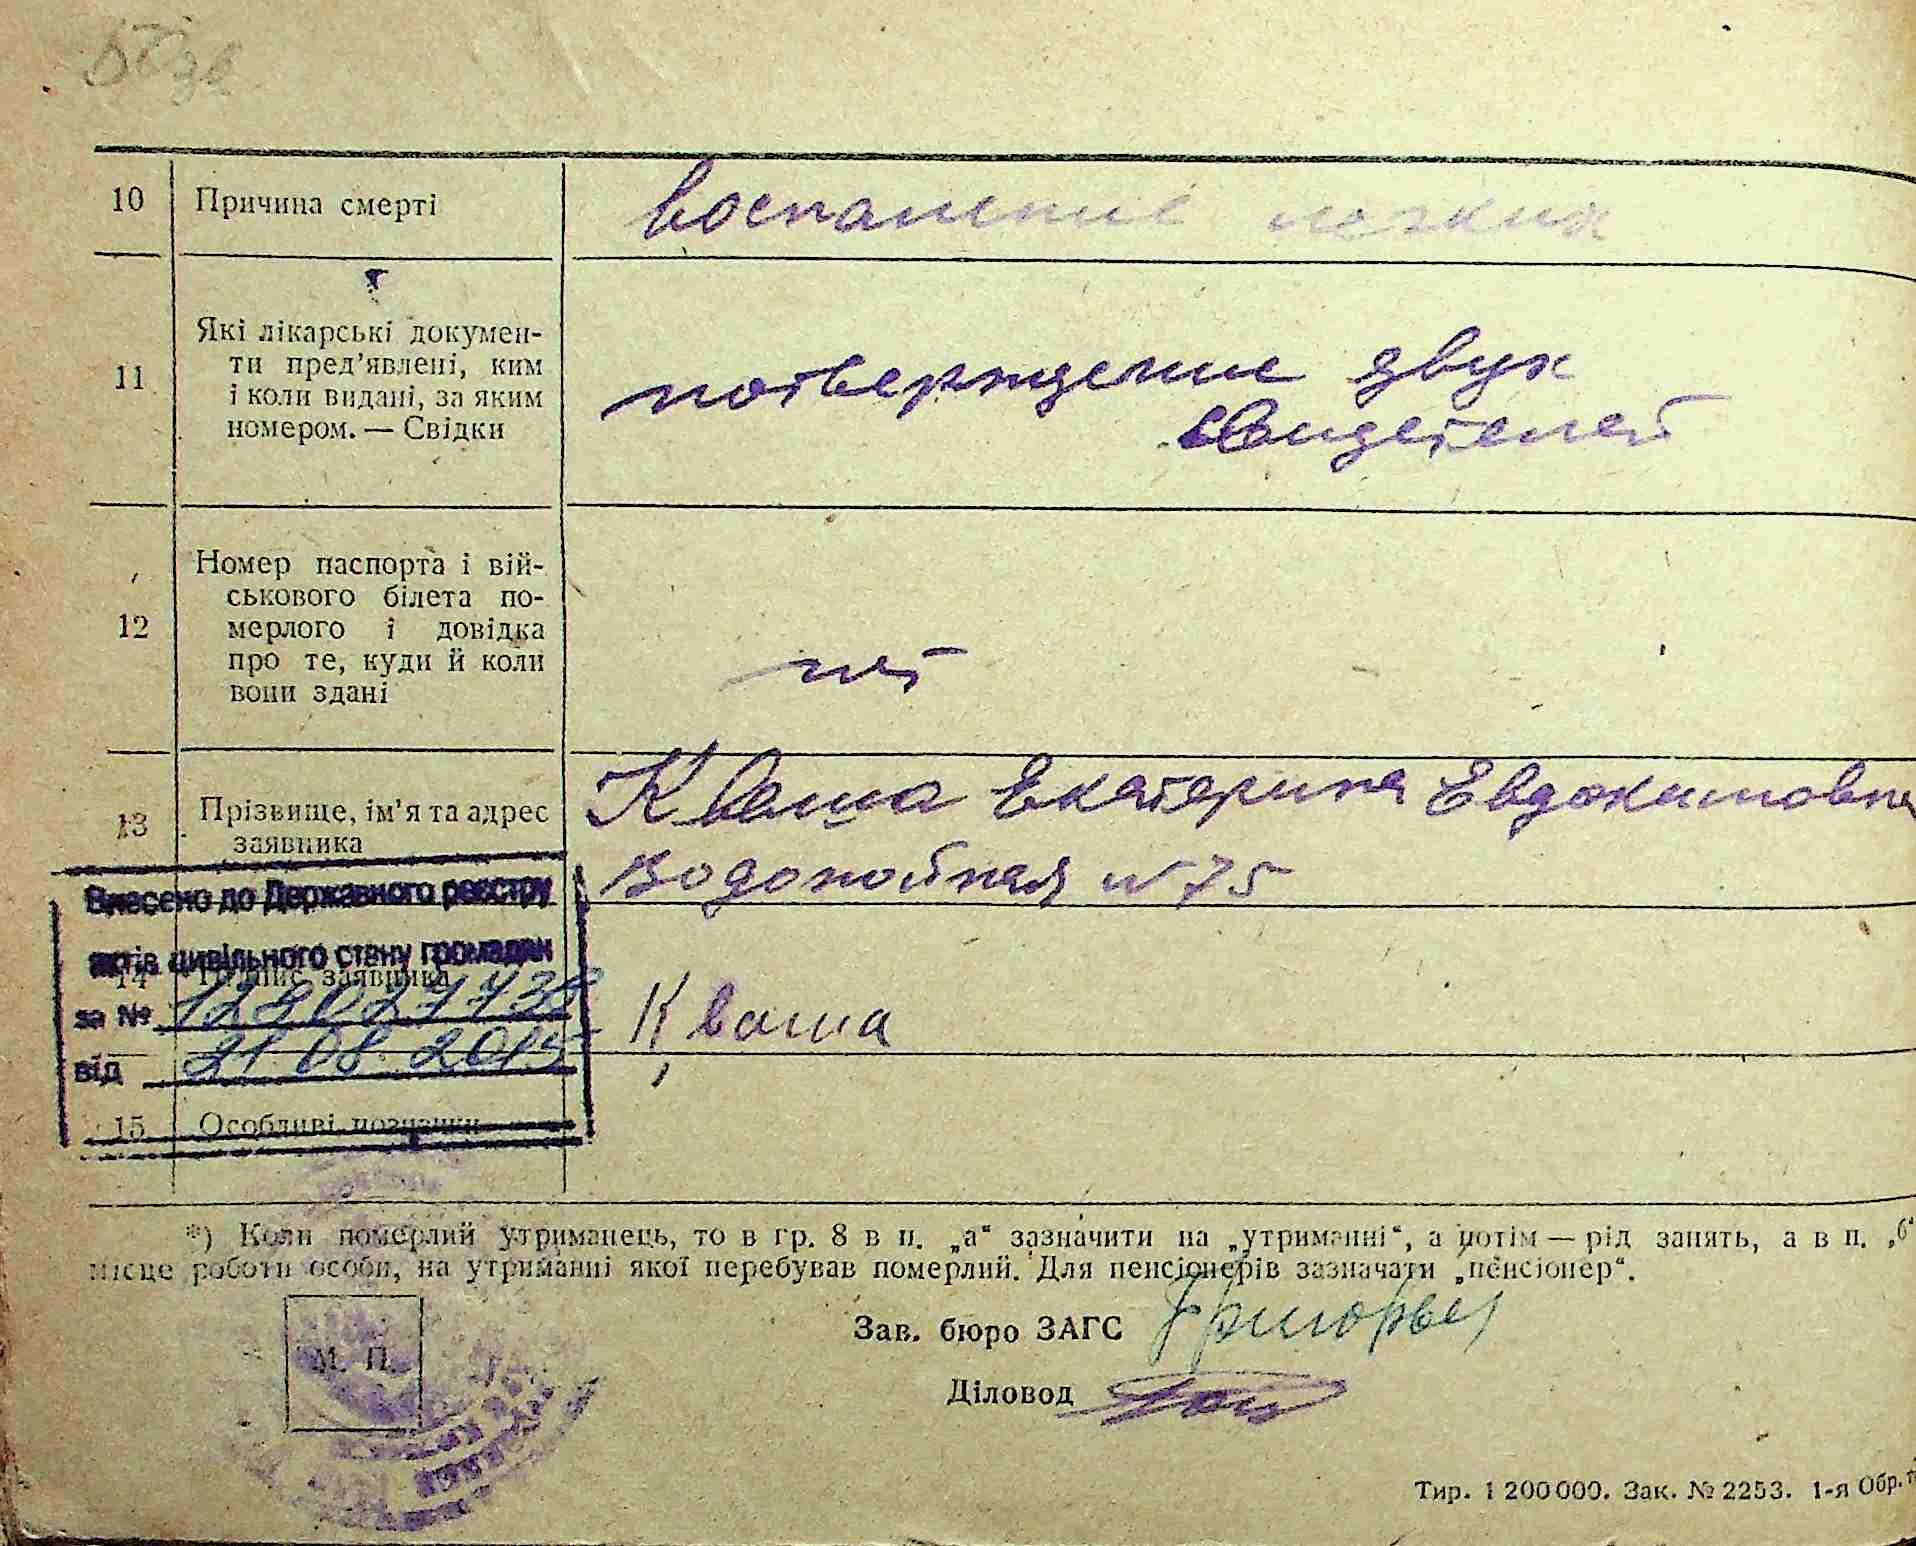 10 Причина смерті воспаление легких
11 Які лікарські докумен-
ти пред’явлені, ким
і коли видані, за яким
номером. — Свідки
потверждение двух
свидетелей
12 Номер паспорта і вій-
ськового білета по-
мерлого і довідка
про те, куди й коли
вони здані
нет
13 Прізвище, ім’я та адрес
заявника
Кваша Екатерина Евдокимовна
Водопойная №75
Внесено до Державного реєстру
актів цивільного стану громадян
14 Підпис заявника
Кваша
за №
від 21 08. 2015
15 Особливі позначки
*) Коли померлий утриманець, то в гр. 8 в п. „а“ зазначити на „утриманні“, а потім — рід занять, а в п. „б“
місце роботи особи, на утриманні якої перебував померлий. Для пенсіонерів зазначати „пенсіонер“.
М. П.
Зав. бюро ЗАГС
Діловод
Тир. 1 200 000. Зак. № 2253. 1-я Обр.